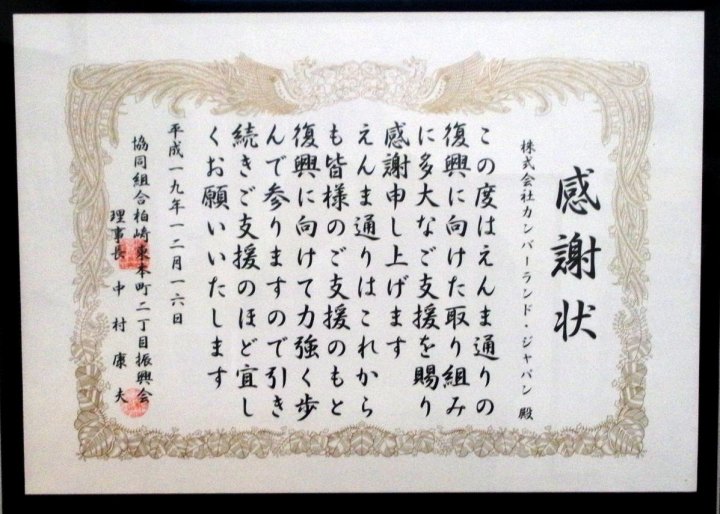 感謝状
株式会社カンバーランド・ジャパン 殿
この度はえんま通りの
復興に向けた取り組み
に多大なご支援を賜り
感謝申し上げます
えんま通りはこれから
も皆様のご支援のもと
復興に向けて力強く歩
んで参りますので引き
続きご支援のほど宜し
くお願いいたします
平成一九年一二月一六日
協同組合柏崎東本町二丁目振興会
理事長 中村康夫